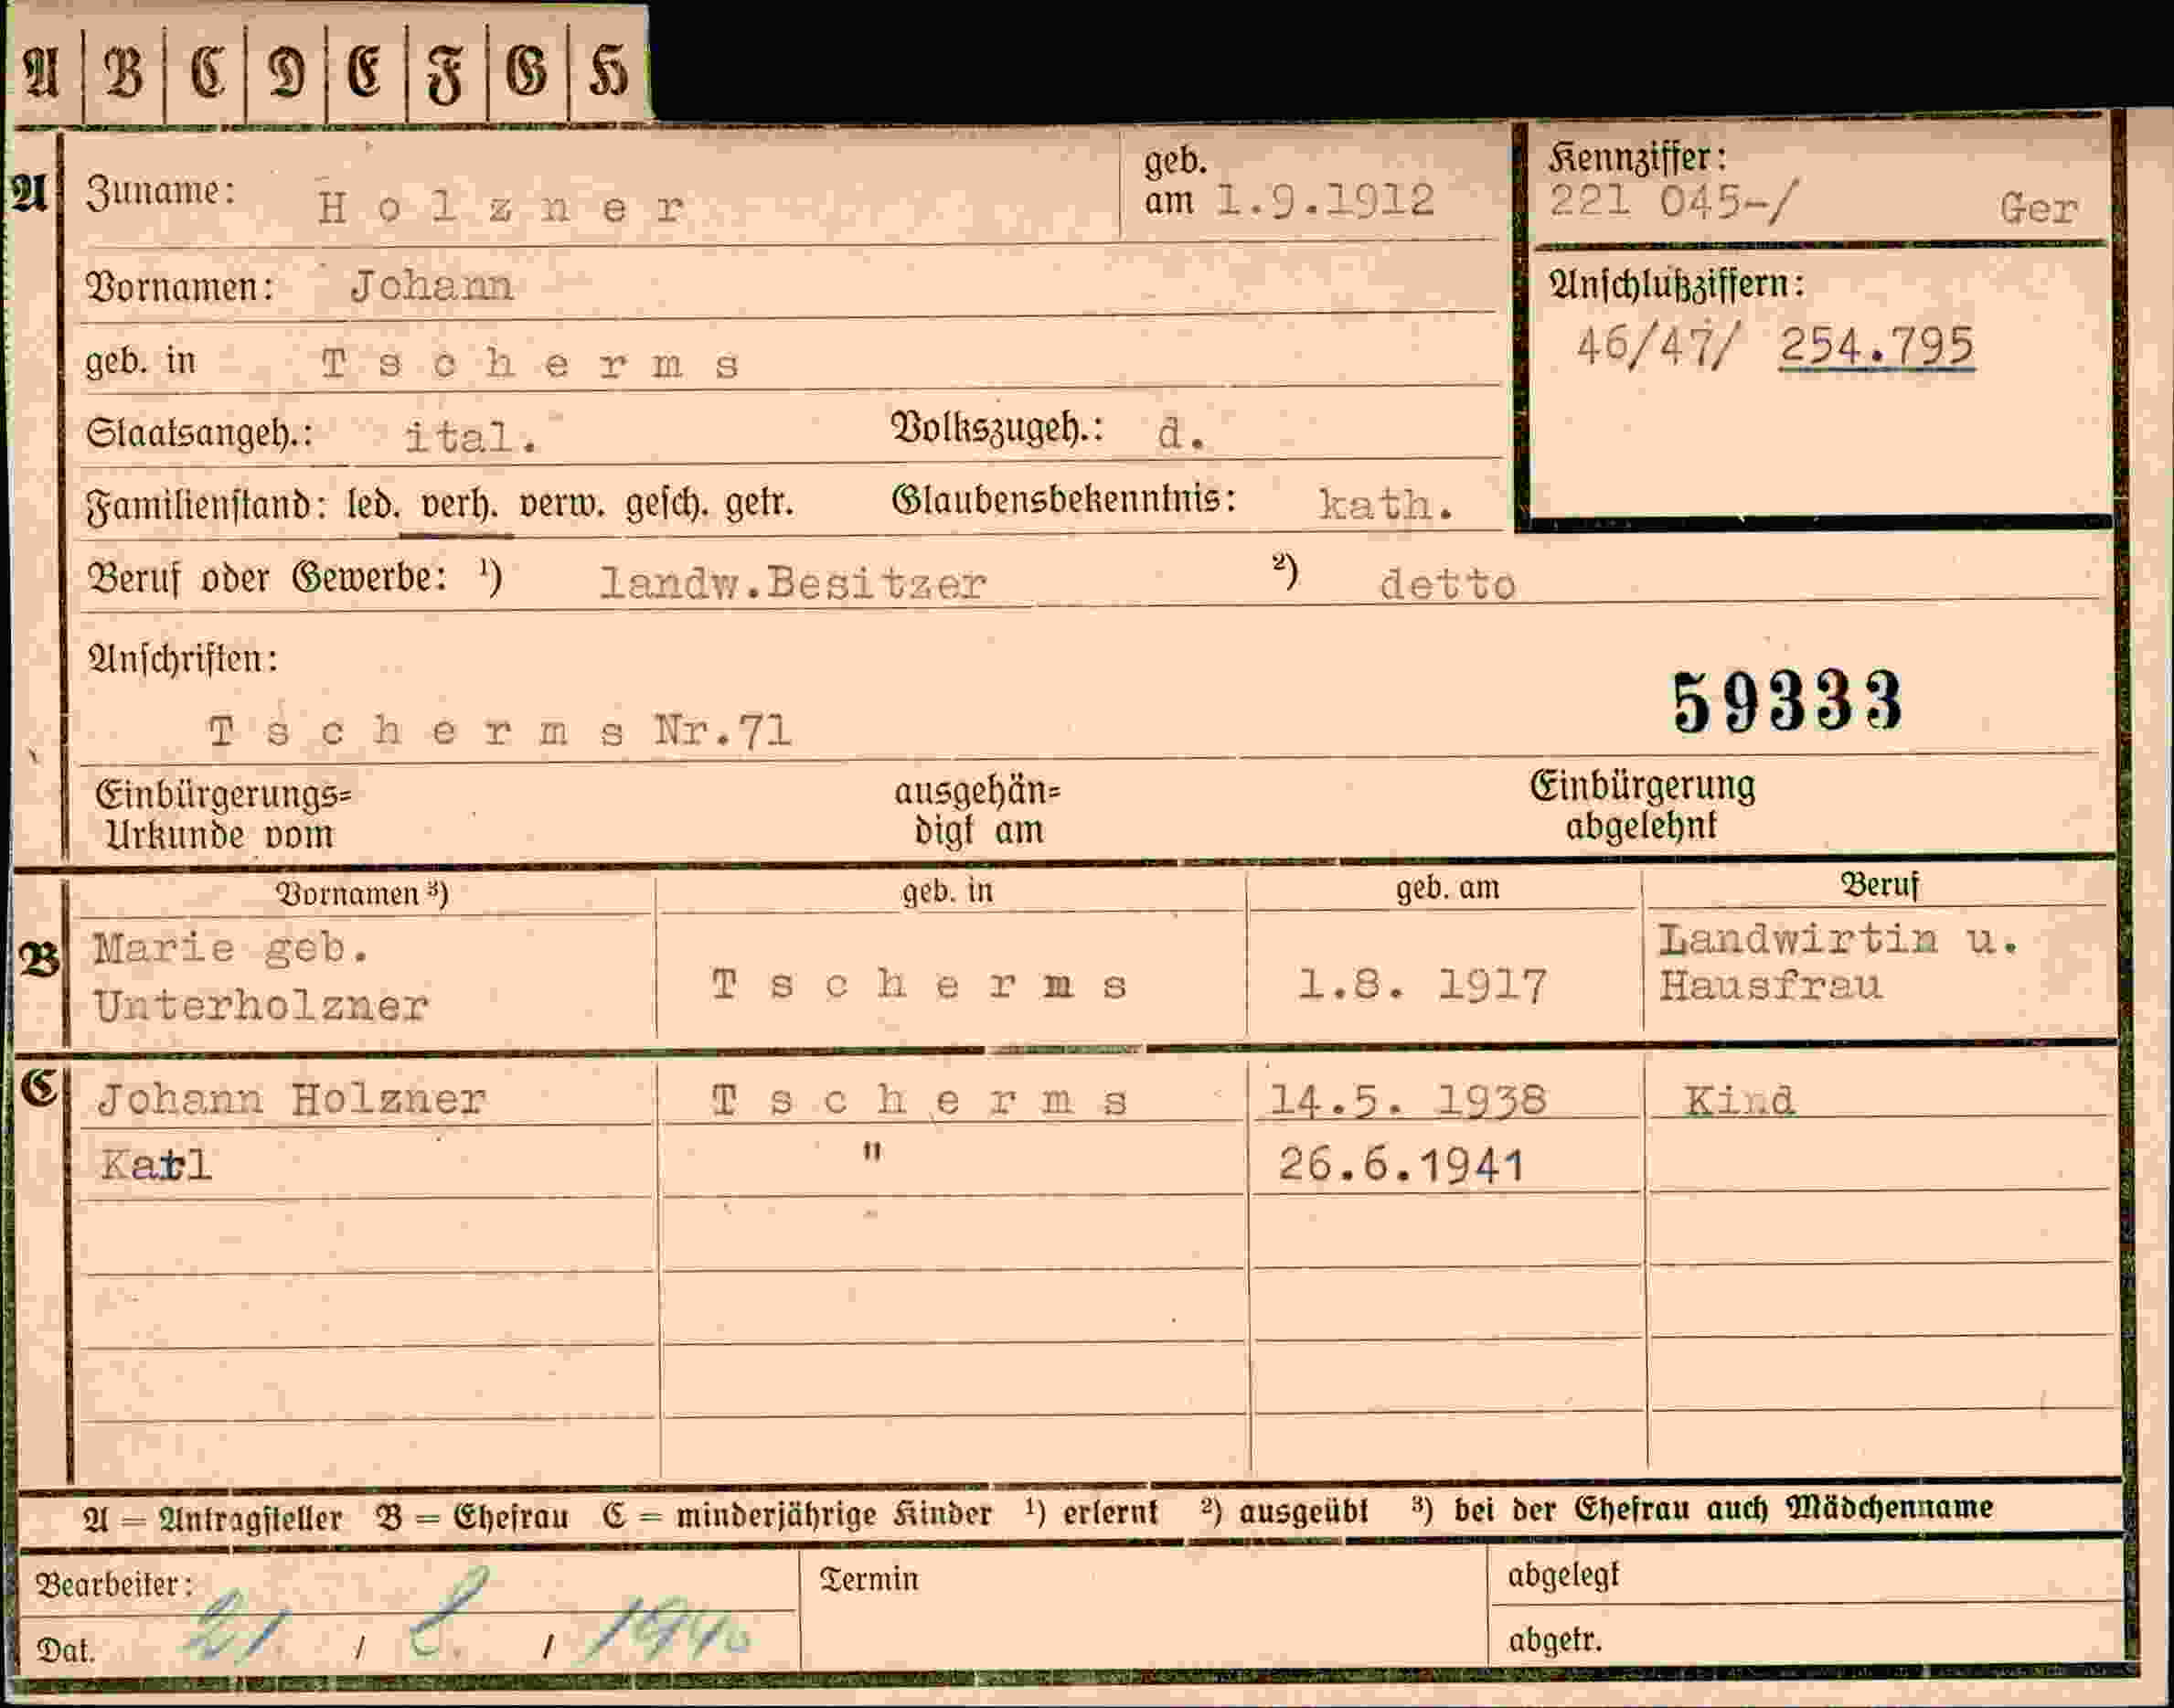 A | B | C | D | E | F | G | H
A Zuname: Holzner geb. am 1.9.1912 Kennziffer: 221 045-/ Ger
Vornamen: Johann Anschlußziffern:
geb. in Tscherms 46/47/ 254.795
Staatsangeh.: ital. Volkszugeh.: d.
Familienstand: led. verh. verw. gesch. getr. Glaubensbekenntnis: kath.
Beruf oder Gewerbe: ¹) landw.Besitzer ²) detto
Anschriften:
59333
Tscherms Nr.71
Einbürgerungs= ausgehän= Einbürgerung
Urkunde vom digt am abgelehnt
Vornamen ³) geb. in geb. am Beruf
B Marie geb. Landwirtin u.
Unterholzner Tscherms 1.8. 1917 Hausfrau
C Johann Holzner Tscherms 14.5. 1938 Kind
Karl " 26.6.1941
A = Antragsteller B = Ehefrau C = minderjährige Kinder ¹) erlernt ²) ausgeübt ³) bei der Ehefrau auch Mädchenname
Bearbeiter: Termin abgelegt
Dat. 21 / 8. / 1940 abgetr.